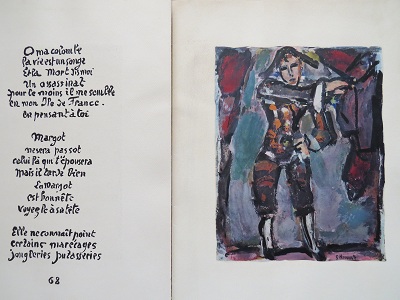 O ma colombe
la vie est un songe
Et la Mort dis moi
Un assassinat
pour le moins il me semble
en mon Ile de France.
en pensant à toi
Margot
ne sera pas sot
celui là qui t'épousera
mais il
bien
La margot
est honnête
voyez le à sa tête
Elle ne connaît point
certains marécages
jongleries putasseries
68